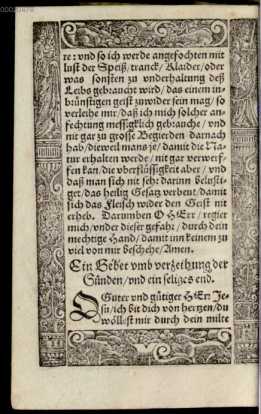 re: vnd so ich werde angefochten mit
lust der Speiß/ tranck/ Klaider/ oder
was sonsten zu vnderhaltung deß
Leibs gebraucht wird/ das einem in-
brünstigen geist zuwider sein mag/ so
verleihe mir/ daß ich mich solcher an-
fechtung messigklich gebrauche/ vnd
nit gar zu grosse Begierden darnach
hab/ dieweil mans je/ damit die Na-
tur erhalten werde/ nit gar verwerf-
fen kan/ die vberflüssigkeit aber/ vnd
daß man sich nit sehr darinn belusti-
get/ das heilig Gesatz verbeut/ damit
sich das Fleisch wider den Geist nit
erheb. Darumben O HErr/ regier
mich/ vnder diser gefahr/ durch dein
mechtige Hand/ damit inn keinem zu
viel von mir beschehe/ Amen.
Ein Gebet vmb verzeihung der
Sünden/ vnd ein seliges end.
O Guter vnd gütiger HErr Je-
su/ ich bit dich von hertzen/ du
wöllest mir durch dein milte